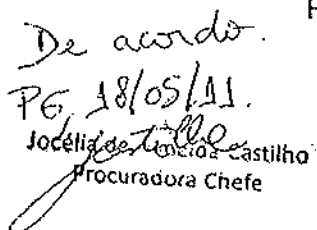 De acordo.
PG, 18/05/11.
Jocélia de Almeida Castilho
Procuradora Chefe